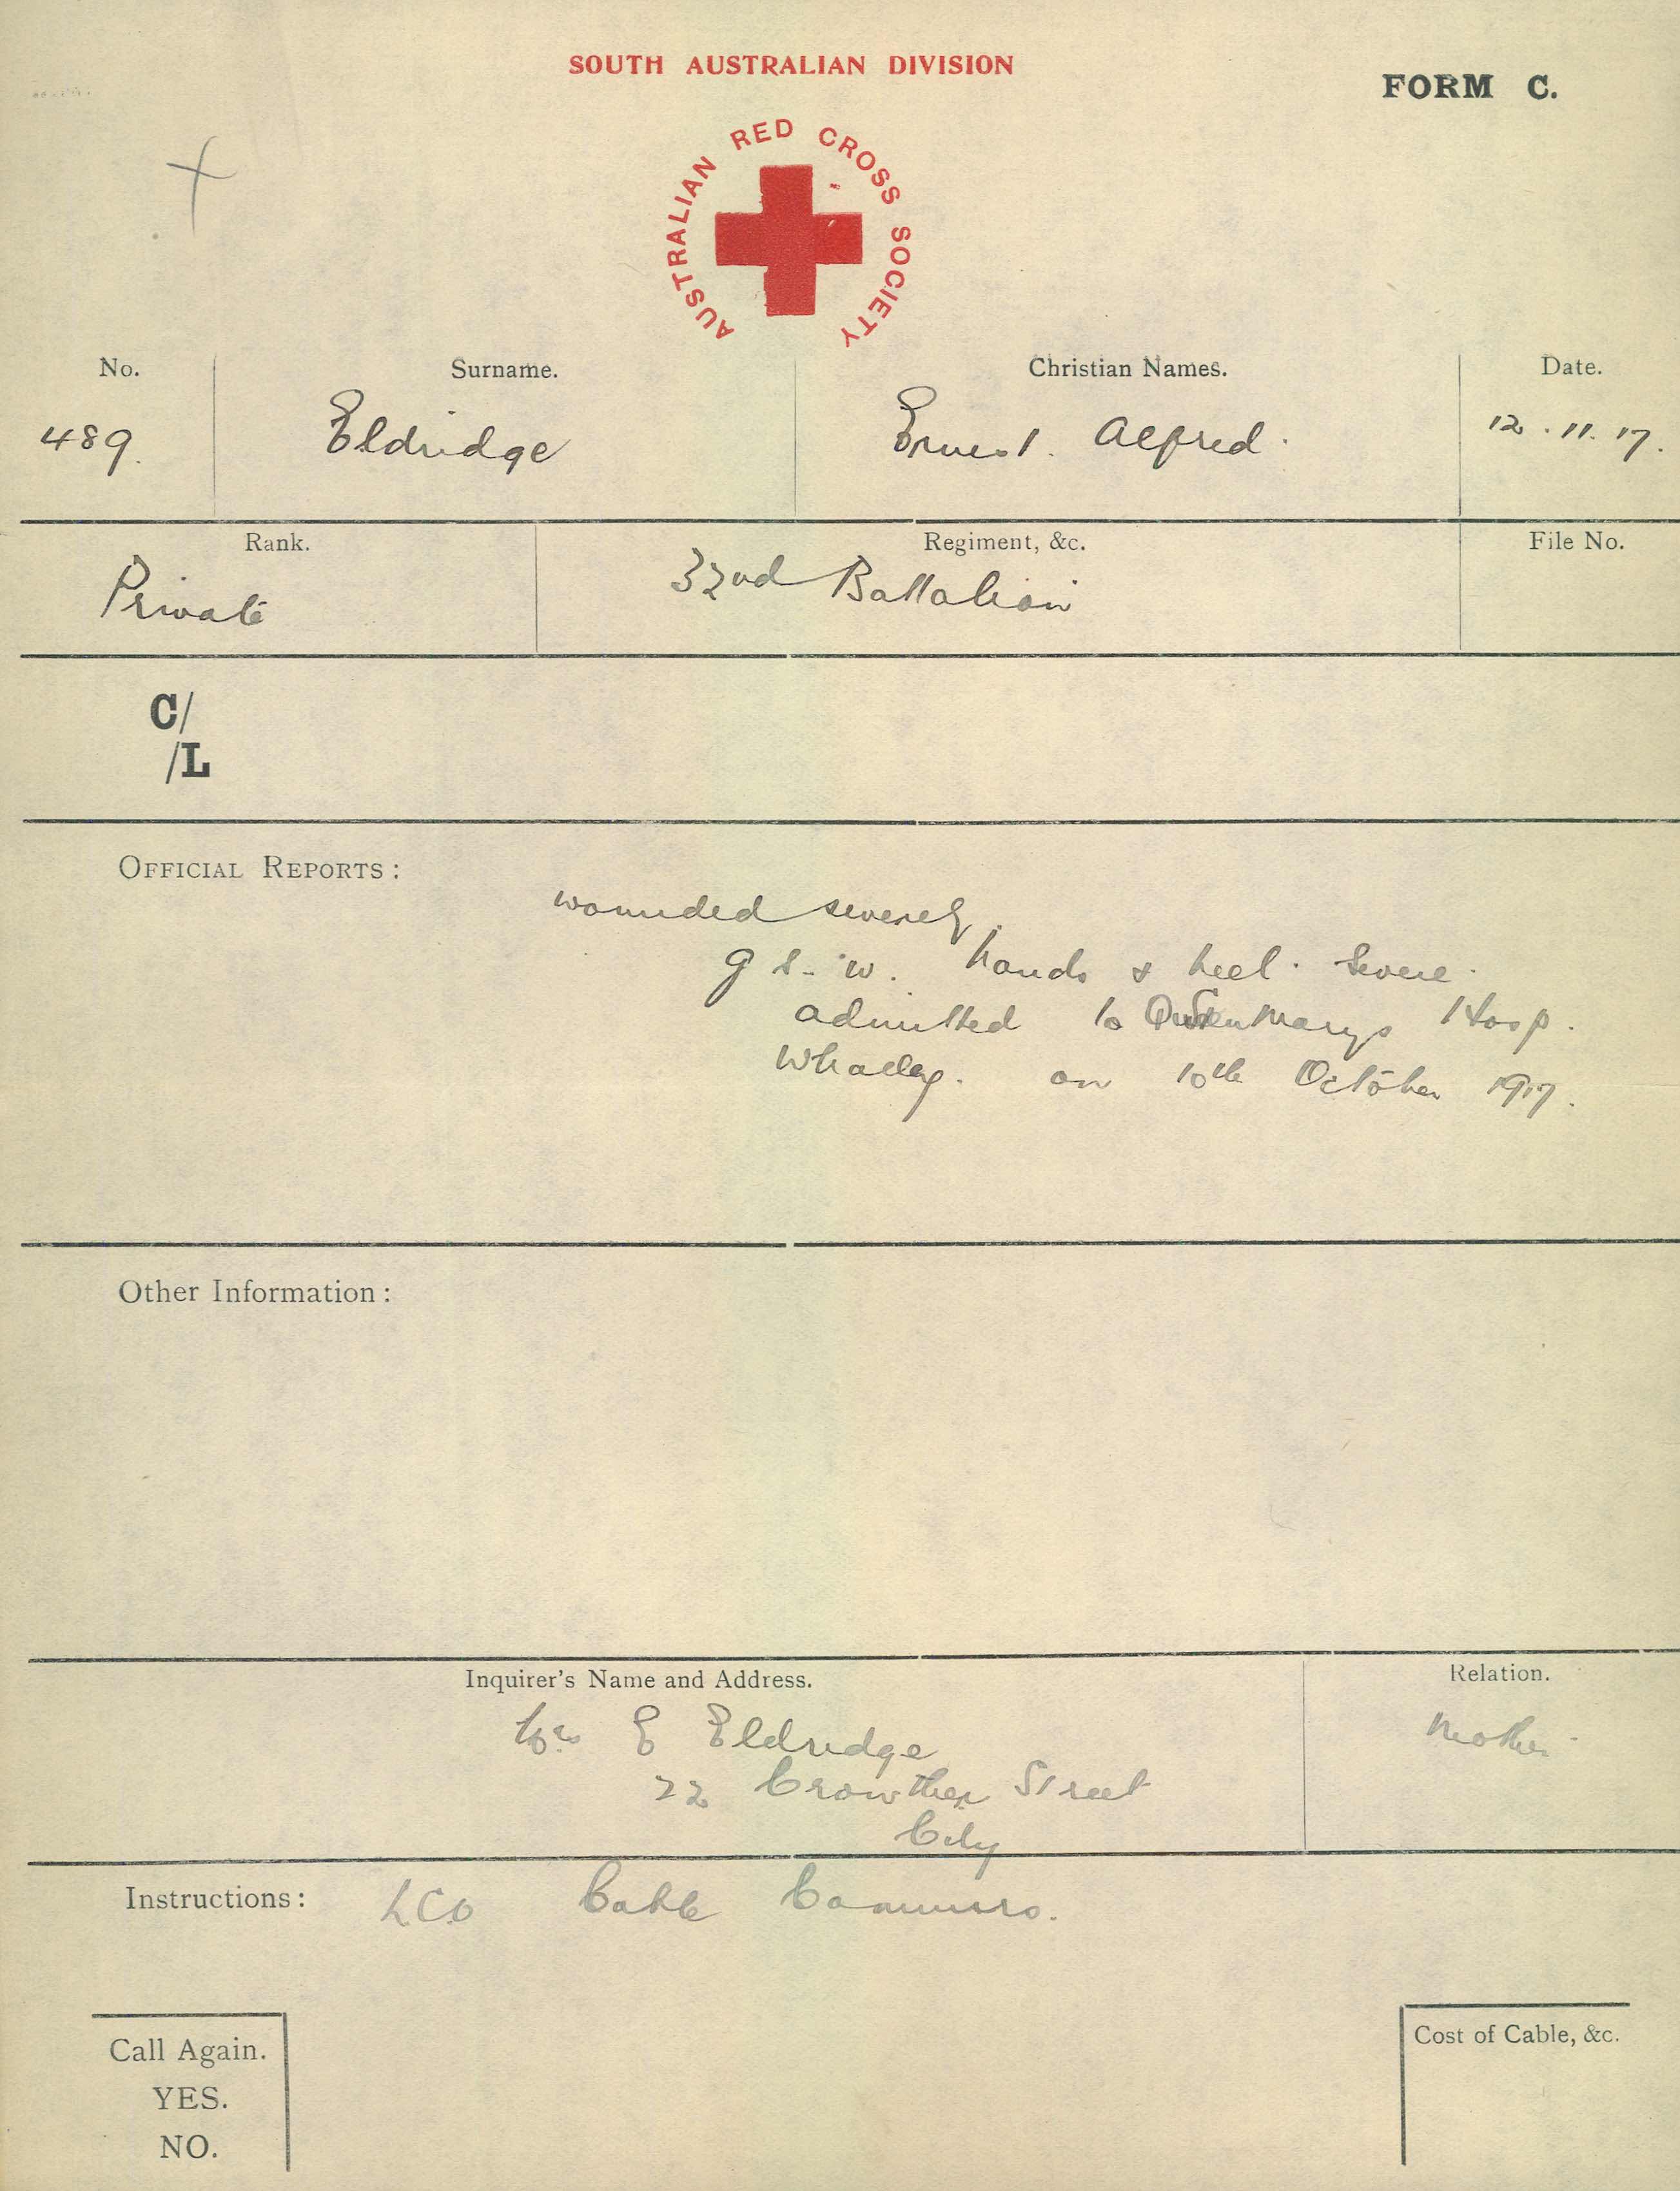 SOUTH AUSTRALIAN DIVISION
FORM C.
AUSTRALIAN RED CROSS SOCIETY
No. Surname. Christian Names. Date.
489. Eldridge Ernest. Alfred. 12.11.17.
Rank. Regiment, &c. File No.
Private 32nd Battalion
C/
/L
OFFICIAL REPORTS:
wounded severely.
g s. w. hands & heel. Severe.
admitted to Queen Marys Hosp.
Whalley. on 10th October 1917.
Other Information:
Inquirer's Name and Address. Relation.
Mrs E Eldridge Mother
22 Crowther Street
City
Instructions: Cable
Call Again.
YES.
NO.
Cost of Cable, &c.